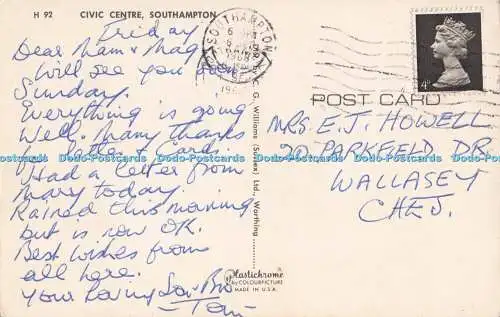 H 92 CIVIC CENTRE, SOUTHAMPTON
Friday
Dear Mam & Mag
Will see you on
Sunday.
Everything is going
Well. Many thanks
for letter & Cards.
Had a letter from
Mary today.
Rained this morning
but is now OK.
Best Wishes from
all here.
Your Loving Son & Bro
- Tom -
SOUTHAMPTON
1968
4d
POST CARD
MRS. E. J. HOWELL
20 PARKFIELD DR
WALLASEY
CHES.
C. G. Williams (Sussex) Ltd., Worthing
Plastichrome
by COLOURPICTURE
MADE IN U.S.A.
Dodo-Postcards Dodo-Postcards Dodo-Postcards Dodo-Postcards Dodo-Postcards